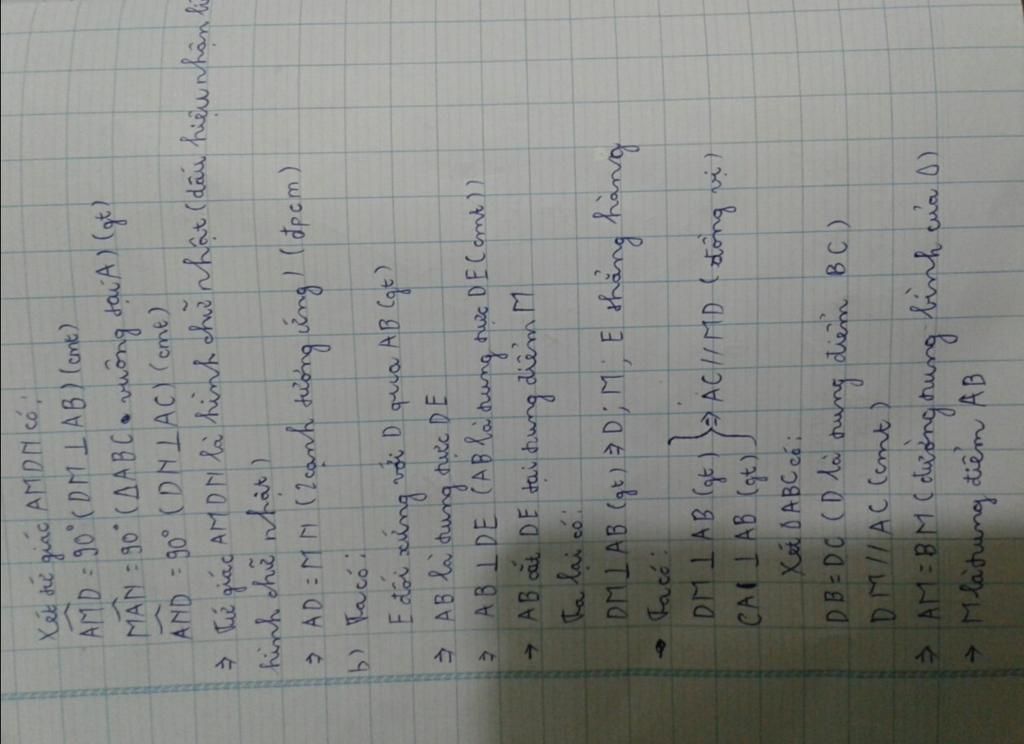 Xét tứ giác AMDN có:
AMD = 90° (DM ⊥ AB) (cmt)
MAN = 90° (ΔABC vuông tại A) (gt)
AND = 90° (DN ⊥ AC) (cmt)
⇒ Tứ giác AMDN là hình chữ nhật (dấu hiệu nhận
hình chữ nhật)
⇒ AD = MN (2 cạnh tương ứng) (đpcm)
b) Ta có:
E đối xứng với D qua AB (gt)
⇒ AB là trung trực DE
⇒ AB ⊥ DE (AB là trung trực DE (cmt))
→ AB cắt DE tại trung điểm M
Ta lại có:
DM ⊥ AB (gt) ⇒ D; M; E thẳng hàng
Ta có:
DM ⊥ AB (gt) } ⇒ AC // MD (đồng vị)
CA ⊥ AB (gt)
Xét ΔABC có:
DB = DC (D là trung điểm BC)
DM // AC (cmt)
⇒ AM = BM (đường trung bình của Δ)
→ M là trung điểm AB